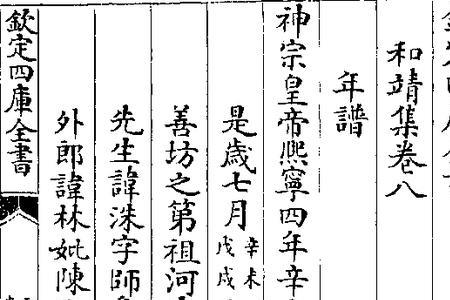 和靖集卷八
年譜
神宗皇帝熈寧四年辛
是歲七月
辛未
戊戌
善坊之第祖河
先生諱洙字師
外郎諱林妣陳
欽定四庫全書